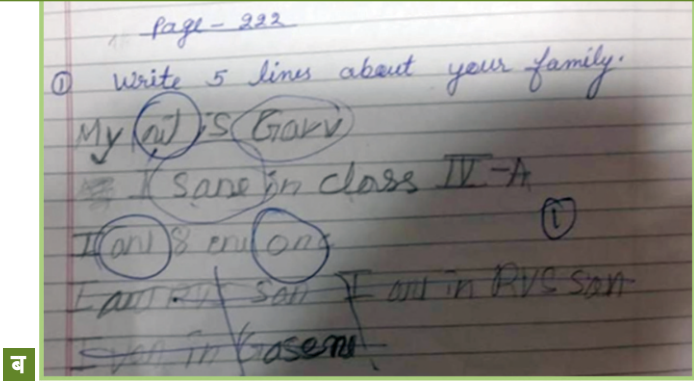 Page - 222
① Write 5 lines about your family.
My is Garv
I Sane in class IV-A
I am 8 one
①
I am RVS San I am in RVS San
in Gasem
ब